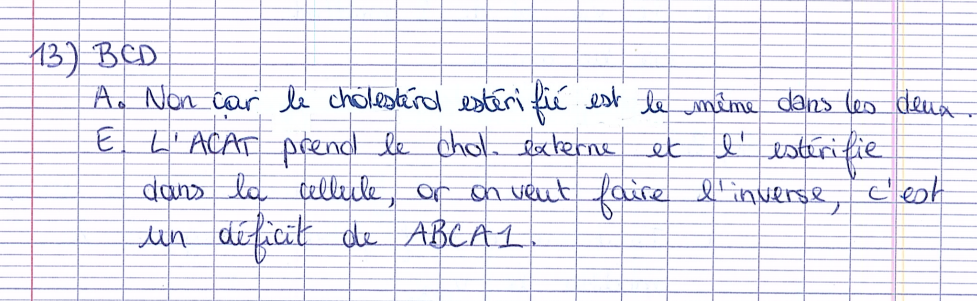 13) BCD
A. Non car le cholestérol estérifié est le même dans les deux.
E. L'ACAT prend le chol. externe et l'estérifie
dans la cellule, or on veut faire l'inverse, c'est
un déficit de ABCA1.